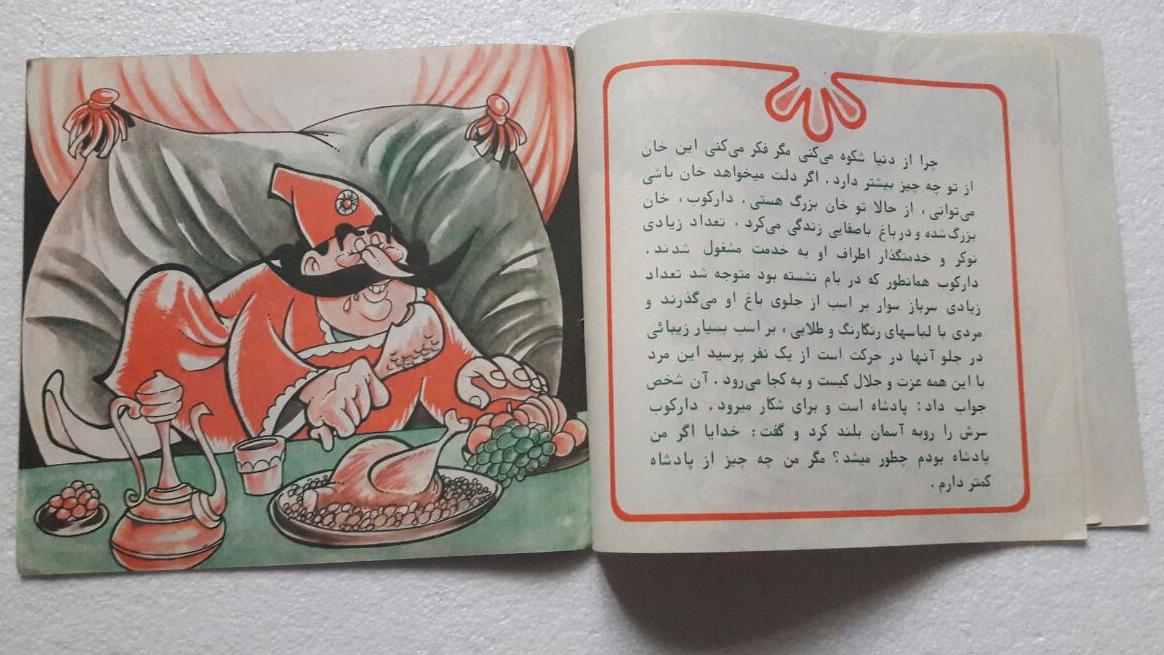 چرا از دنیا شکوه می‌کنی مگر فکر می‌کنی این خان
از تو چه چیز بیشتر دارد. اگر دلت میخواهد خان باشی
می‌توانی، از حالا تو خان بزرگ هستی. دارکوب، خان
بزرگ شده و در باغ باصفایی زندگی می‌کرد. تعداد زیادی
نوکر و خدمتگذار اطراف او به خدمت مشغول شدند.
دارکوب همانطور که در بام نشسته بود متوجه شد تعداد
زیادی سرباز سوار بر اسب از جلوی باغ او می‌گذرند و
مردی با لباسهای رنگارنگ و طلایی، بر اسب بسیار زیبائی
در جلو آنها در حرکت است از یک نفر پرسید این مرد
با این همه عزت و جلال کیست و به کجا می‌رود. آن شخص
جواب داد: پادشاه است و برای شکار میرود. دارکوب
سرش را روبه آسمان بلند کرد و گفت: خدایا اگر من
پادشاه بودم چطور میشد؟ مگر من چه چیز از پادشاه
کمتر دارم.